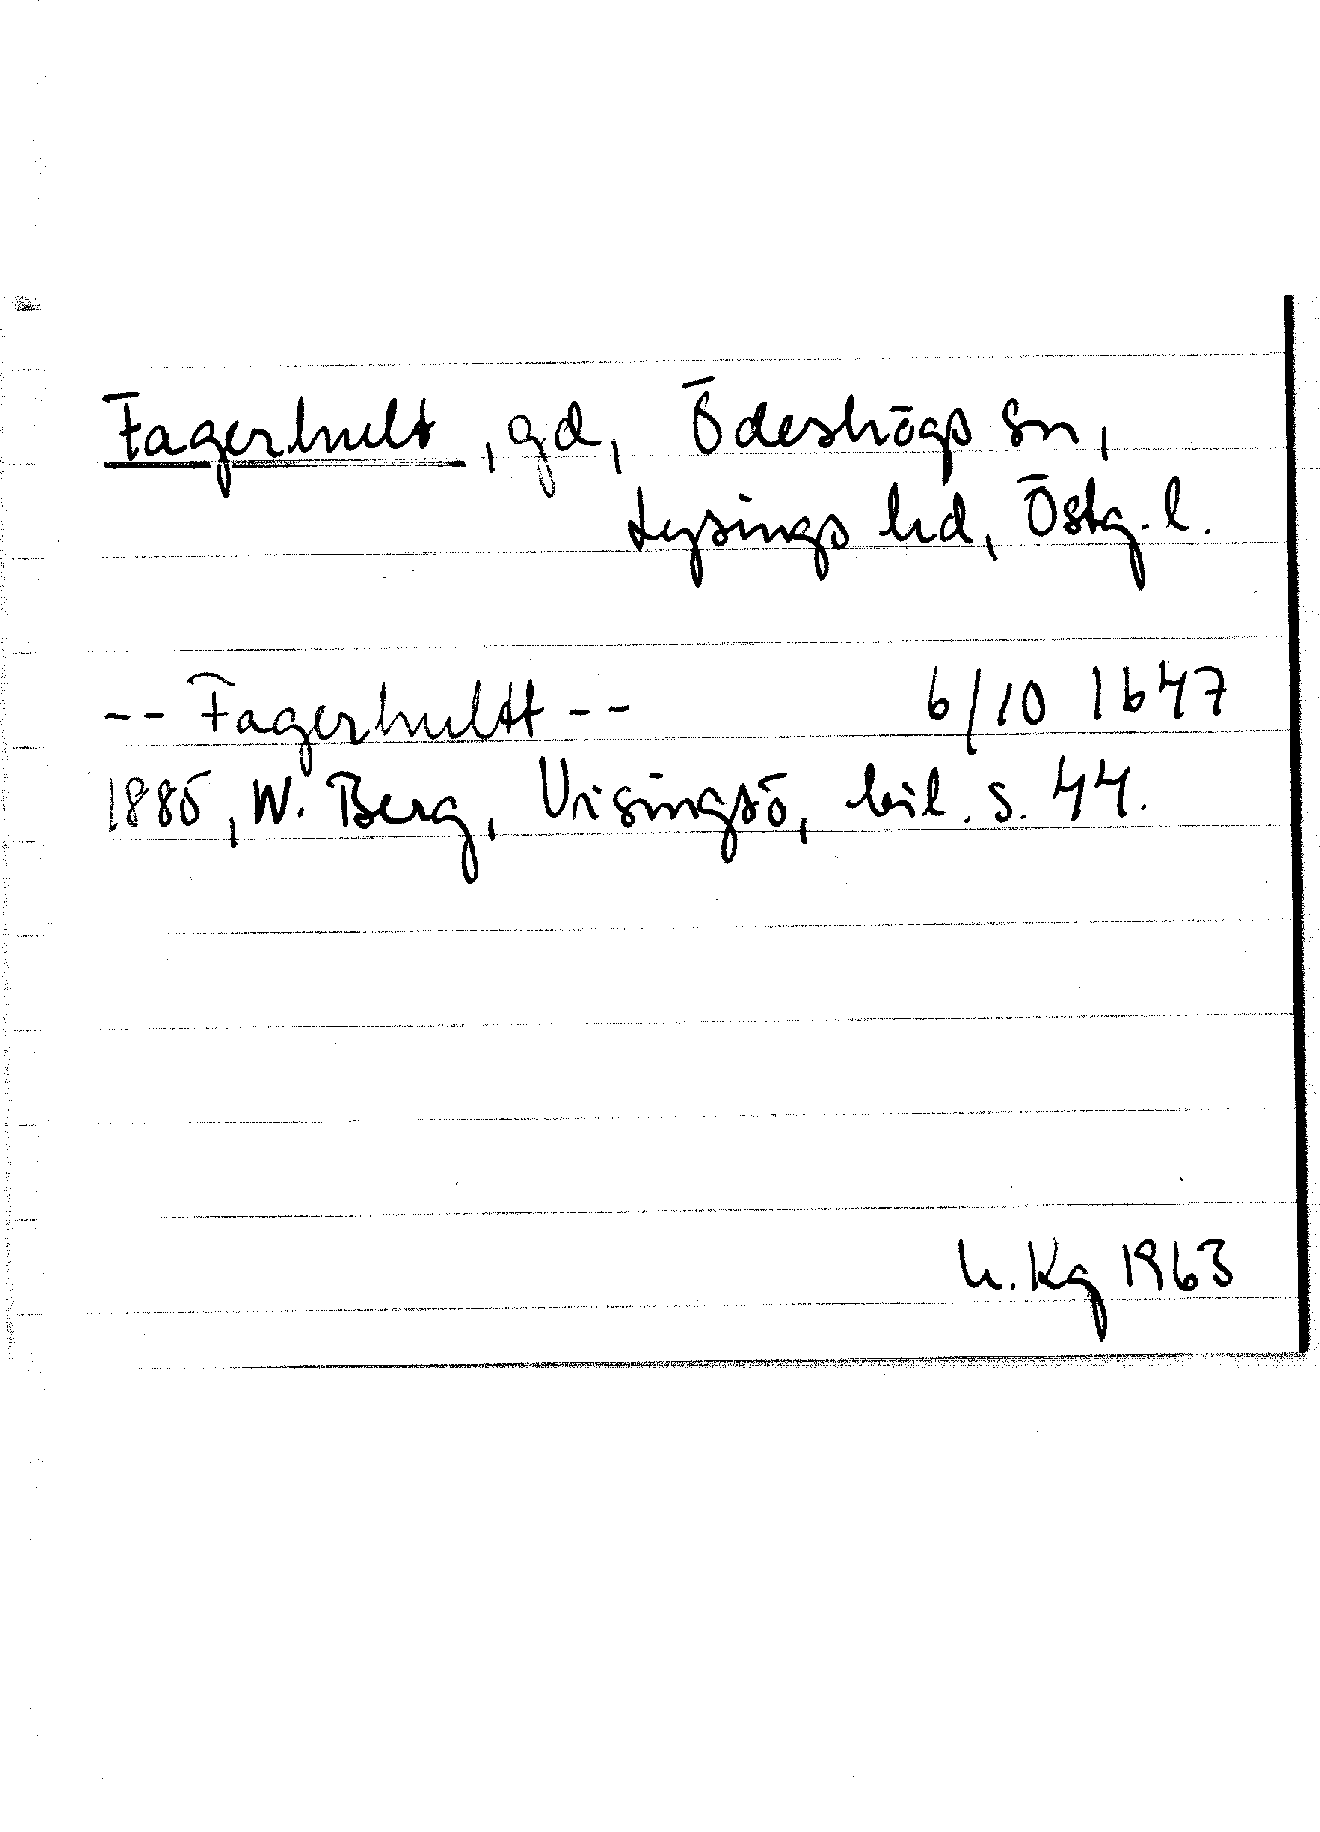 Fagerhult, gd, Ödeshögs sn,
Lysings hd, Östg. l.
-- Fagerhultt -- 6/10 1647
1885, W. Berg, Visingsö, bil. s. 44.
h. Kg 1963